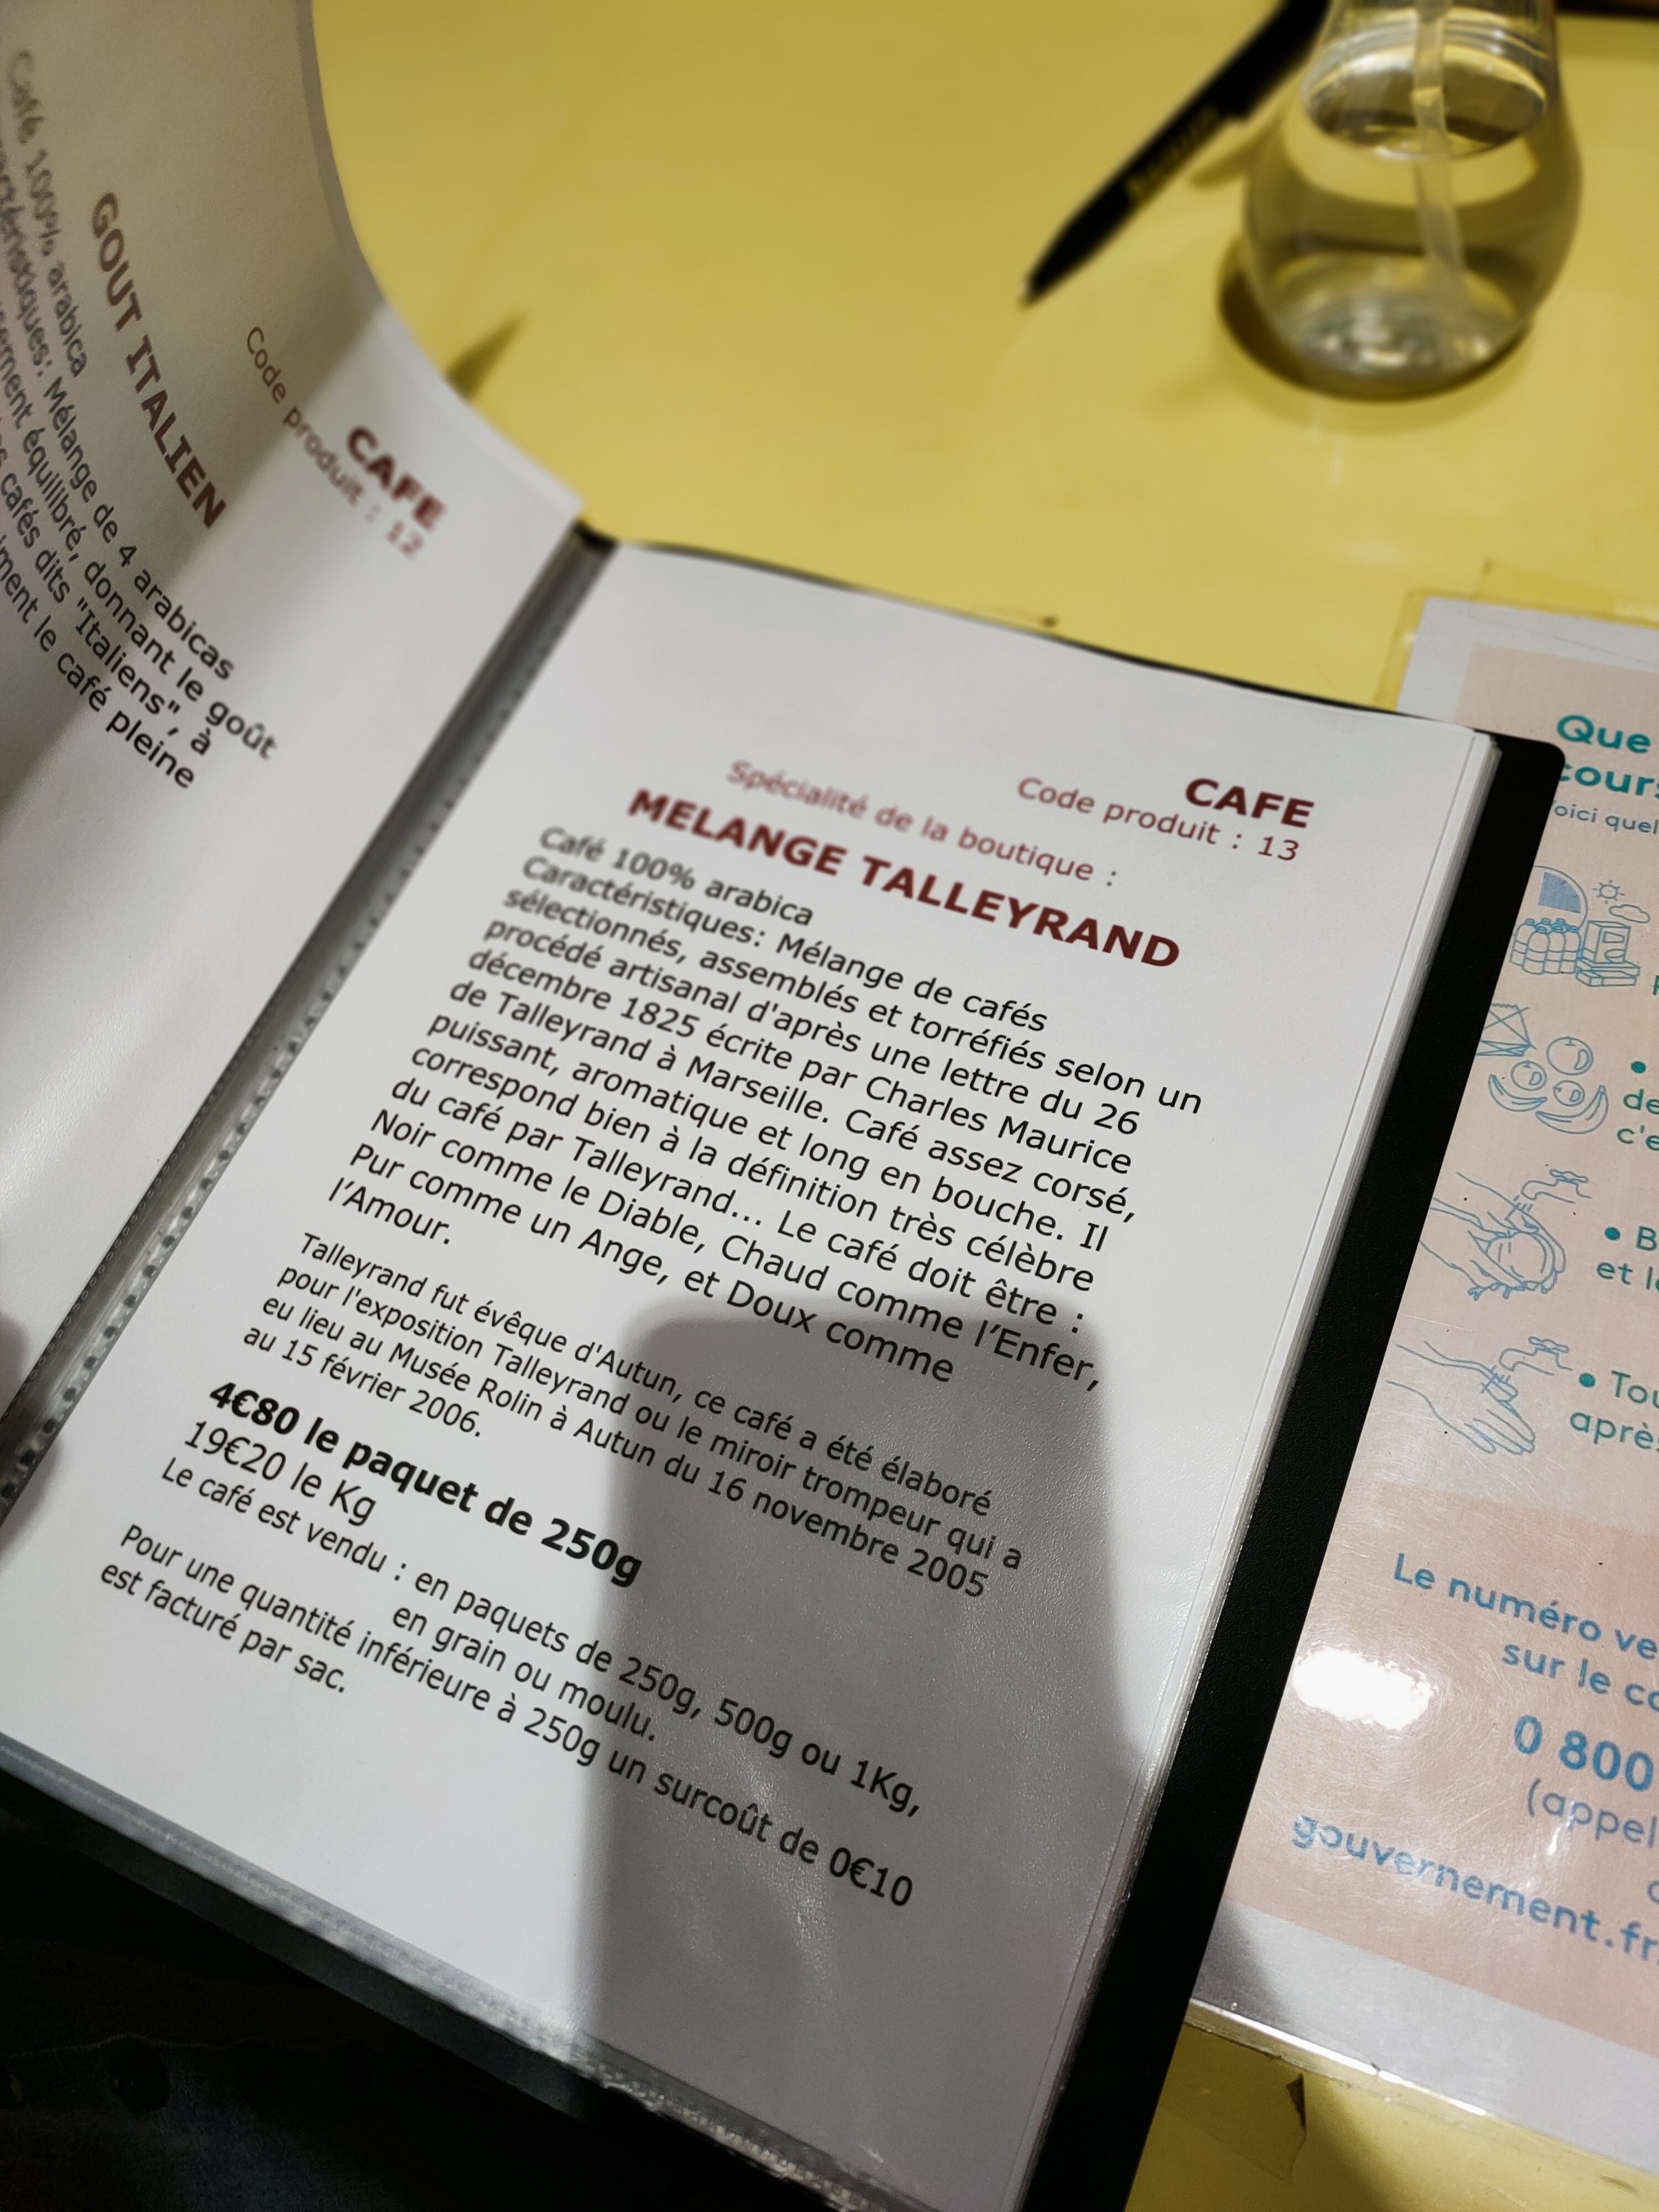 CAFE
Code produit : 12
GOUT ITALIEN
Café 100% arabica
Mélange de 4 arabicas
équilibré, donnant le goût
cafés dits "Italiens", à
le café pleine
CAFE
Code produit : 13
Spécialité de la boutique :
MELANGE TALLEYRAND
Café 100% arabica
Caractéristiques: Mélange de cafés
sélectionnés, assemblés et torréfiés selon un
procédé artisanal d'après une lettre du 26
décembre 1825 écrite par Charles Maurice
de Talleyrand à Marseille. Café assez corsé,
puissant, aromatique et long en bouche. Il
correspond bien à la définition très célèbre
du café par Talleyrand... Le café doit être :
Noir comme le Diable, Chaud comme l'Enfer,
Pur comme un Ange, et Doux comme
l'Amour.
Talleyrand fut évêque d'Autun, ce café a été élaboré
pour l'exposition Talleyrand ou le miroir trompeur qui a
eu lieu au Musée Rolin à Autun du 16 novembre 2005
au 15 février 2006.
4€80 le paquet de 250g
19€20 le Kg
Le café est vendu : en paquets de 250g, 500g ou 1Kg,
en grain ou moulu.
Pour une quantité inférieure à 250g un surcoût de 0€10
est facturé par sac.
Que
cours
quel
de
c'e
et l
après
Le numéro ve
sur le co
0 800
(appel
gouvernement.fr